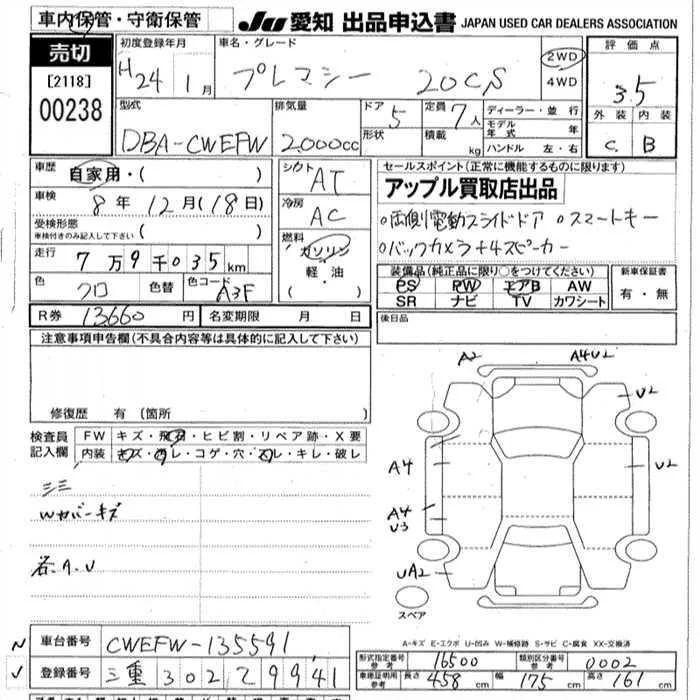 車内保管・守衛保管
JU 愛知 出品申込書 JAPAN USED CAR DEALERS ASSOCIATION
売切
[2118]
00238
初度登録年月
H24 1月
車名・グレード
プレマシー 20CS
2WD
4WD
評価点
3.5
外装 内装
C B
型式
DBA-CWEFW
排気量
2,000cc
ドア 5
形状
定員 7人
積載 kg
ディーラー・並行
モデル年式 年
ハンドル 左・右
車歴
自家用・( )
車検
8年12月(18日)
受検形態
※検付きのみ記入して下さい ( )
走行
7万9千035km
色
クロ
色替
色コード
A3F
シフト
AT
冷房
AC
燃料
ガソリン
軽・油
( ・ )
セールスポイント(正常に機能するものに限ります)
アップル買取店出品
○両側電動スライドドア ○スマートキー
○バックカメラ+4スピーカー
装備品(純正品に限り○をつけてください)
PS PW エアB AW
SR ナビ TV カワシート
新車保証書
有・無
R券 13660円
名変期限 月 日
後日品
注意事項申告欄(不具合内容等は具体的に記入して下さい)
修復歴 有(箇所 )
検査員記入欄
FW キズ・飛石・ヒビ割・リペア跡・X要
内装 キズ・汚レ・コゲ・穴・スレ・キレ・破レ
三ミ
Wカバーキズ
各.A.U
A2 A4U2
U2
A4
U2
A4
U3
UA2
スペア
A-キズ E-エクボ U-凹み W-補修跡 S-サビ C-腐食 XX-交換済
車台番号 CWEFW-135591
登録番号 三重 302 て 9941
形式指定番号 参考 16500
類別区分番号 参考 0002
車庫証明用 参考 長さ 458cm 幅 175cm 高さ 161cm